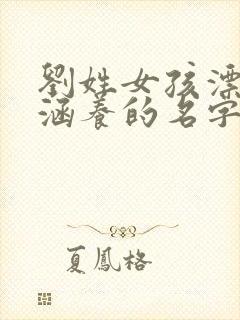 劉姓女孩漂
涵養的名字
夏鳳格